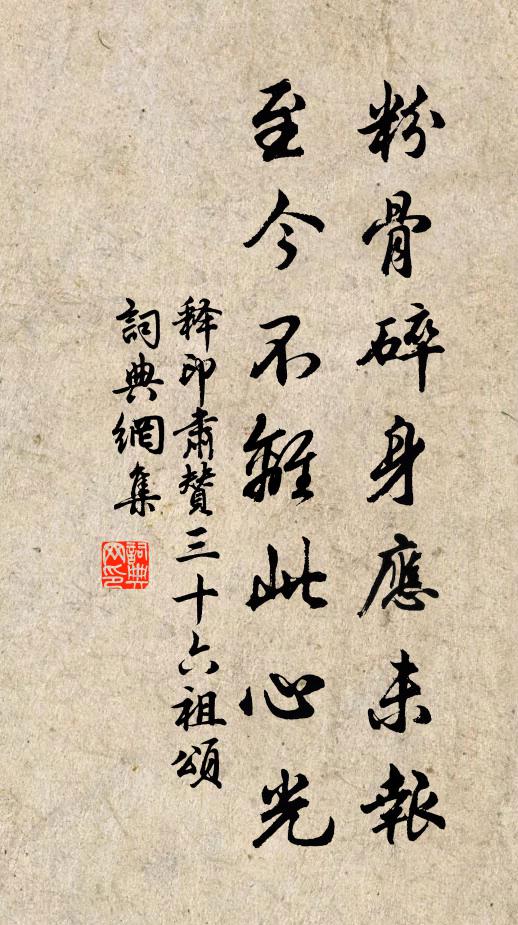 粉骨碎身應未報
至今不離此心光
释印肅贊三十六祖頌
詞典網集
詞典网印